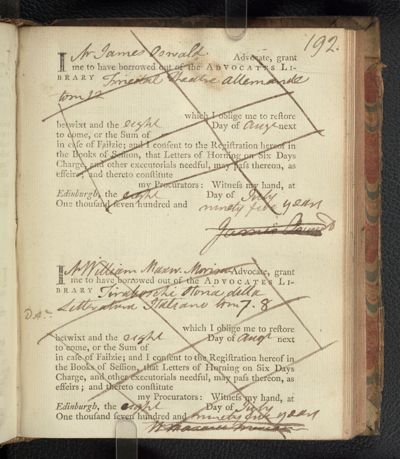 192.
I Mr James Oswald Advocate, grant
me to have borrowed out of the ADVOCATES LI-
BRARY Theatre Allemande
tom 12
which I oblige me to restore
betwixt and the eight Day of Augt next
to come, or the Sum of
in case of Failzie; and I consent to the Registration hereof in
the Books of Session, that Letters of Horning on Six Days
Charge, and other executorials needful, may pass thereon, as
effeirs; and thereto constitute
my Procurators: Witness my hand, at
Edinburgh, the eight Day of July
One thousand seven hundred and ninety five years
James Oswald
I Mr William Maxw. Morison Advocate, grant
me to have borrowed out of the ADVOCATES LI-
BRARY Tiraboschi Storia della
Letteratura Italiano tom 7. 8
which I oblige me to restore
betwixt and the eight Day of Augt next
to come, or the Sum of
in case of Failzie; and I consent to the Registration hereof in
the Books of Session, that Letters of Horning on Six Days
Charge, and other executorials needful, may pass thereon, as
effeirs; and thereto constitute
my Procurators: Witness my hand, at
Edinburgh, the eight Day of July
One thousand seven hundred and ninety five years
W Maxwell Morison